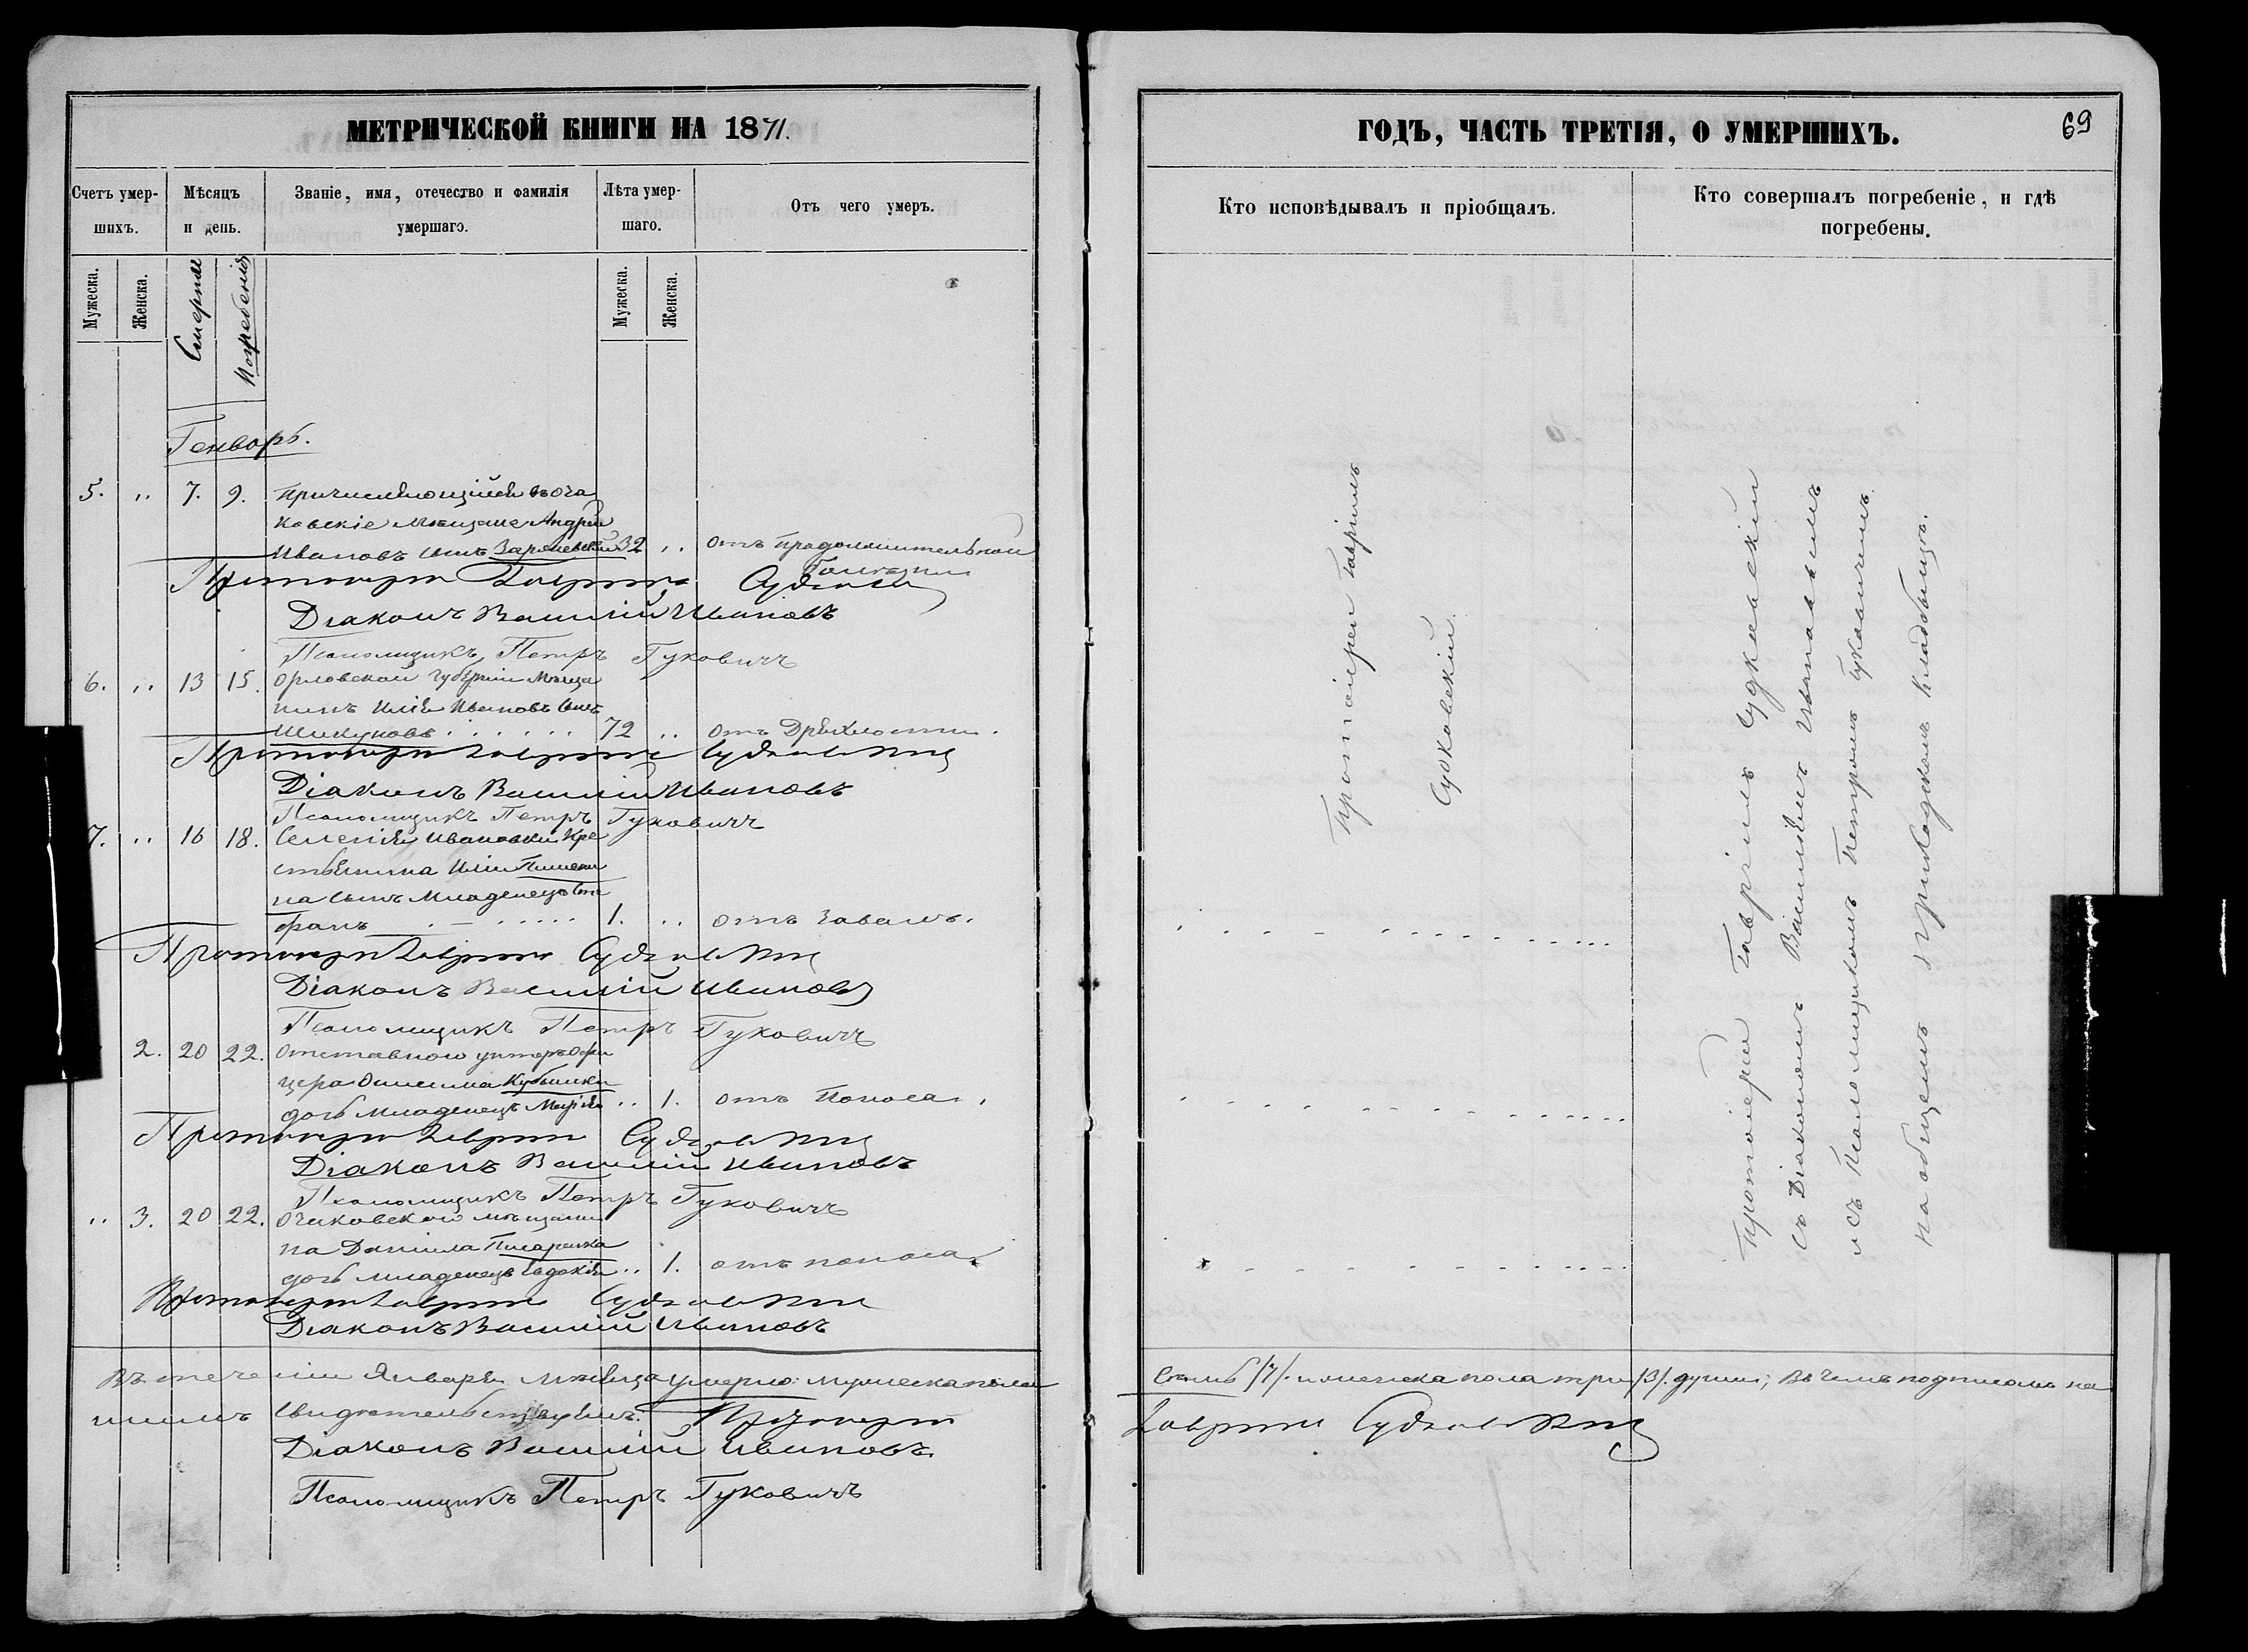 МЕТРИЧЕСКОЙ КНИГИ НА 1871.
Счетъ умер-
шихъ.
Мѣсяцъ
и день.
Званіе, имя, отечество и фамилія
умершаго.
Лѣта умер-
шаго.
Отъ чего умеръ.
Мужеска.
Женска.
Смерти
Погребенія
Мужеска.
Женска.
Генворь.
5. „ 7. 9. Причисляющійся въ оча
ковскіе мѣщане Андрей
Ивановъ сынъ 32 „ отъ продолжительной
Протоіерей Гавріилъ Судковскій
Діаконъ Василій Ивановъ
Псаломщикъ Петръ Гуковичъ
6. „ 13 15. Орловской губерніи мѣща
нинъ Илія Ивановъ сынъ
72 „ отъ Дряхлости.
Протоіерей Гавріилъ Судковскій
Діаконъ Василій Ивановъ
Псаломщикъ Петръ Гуковичъ
7. „ 16 18. Селенія Ивановки Кре
стьянина Иліи
на сынъ Младенецъ Сте
фанъ 1. „ отъ Завалъ.
Протоіерей Гавріилъ Судковскій
Діаконъ Василій Ивановъ
Псаломщикъ Петръ Гуковичъ
2. 20 22. Отставнаго унтеръ офи
цера Онисима Кубышки
дочь младенецъ Марія „ 1. отъ Поноса.
Протоіерей Гавріилъ Судковскій
Діаконъ Василій Ивановъ
Псаломщикъ Петръ Гуковичъ
„ 3. 20 22. Очаковскаго мѣщани
на Даніила Писаренка
дочь младенецъ Евдокія „ 1. отъ поноса
Протоіерей Гавріилъ Судковскій
Діаконъ Василій Ивановъ
Въ теченіи Января мѣсяца умерло: мужеска пола
шимъ свидѣтельствуемъ. Протоіерей
Діаконъ Василій Ивановъ.
Псаломщикъ Петръ Гуковичъ
ГОДЪ, ЧАСТЬ ТРЕТІЯ, О УМЕРШИХЪ.
69
Кто исповѣдывалъ и пріобщалъ.
Кто совершалъ погребеніе, и гдѣ
погребены.
Протоіерей Гавріилъ
Судковскій
Протоіерей Гавріилъ Судковскій
съ Діакономъ Василіемъ Ивановымъ
и съ Псаломщикомъ Петромъ Гуковичемъ
на общемъ приходскомъ кладбищѣ.
семь /7/. и женска пола три /3/. души; въ чемъ подписомъ на
Гавріилъ Судковскій